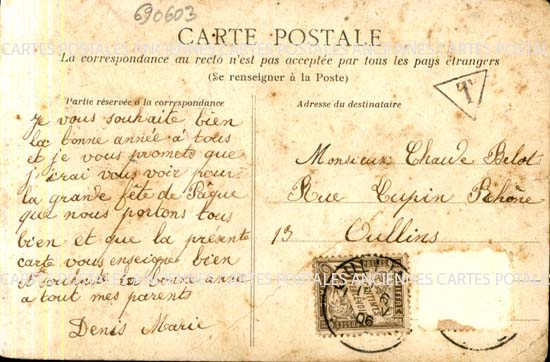 690603
CARTE POSTALE
La correspondance au recto n'est pas acceptée par tous les pays étrangers
(Se renseigner à la Poste)
Partie réservée à la correspondance
Adresse du destinataire
T
Je vous souhaite bien
la bonne année à tous
et je vous promets que
j'irai vous voir pour
la grande fête de Pâque
que nous portons tous
bien et que la présente
carte vous enseigne bien
et souhaite bonne anné
a tout mes parents
Denis Marie
Monsieur Claude Bilot
Rue Lupin Rhône
13 Oullins
CARTES POSTALES ANCIENNES CARTES POSTALES ANCIENNES CARTES POSTALES
06